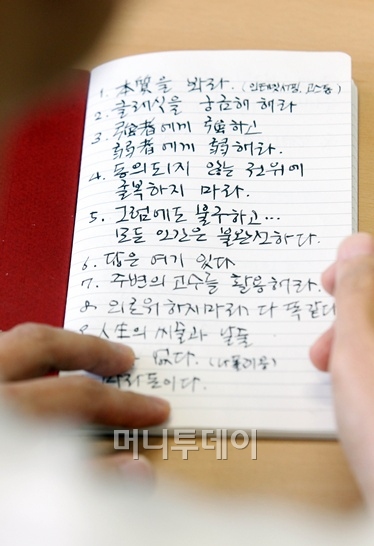 1. 本質을 봐라. (인테넷서핑, 고스톱)
2. 클래식을 궁금해 해라
3. 强者에게 强하고
弱者에게 弱해라.
4. 동의되지 않는 권위에
굴복하지 마라.
5. 그럼에도 불구하고...
모든 인간은 불완전하다.
6. 답은 여기 있다
7. 주변의 고수를 활용해라.
8. 의로워하지마라. 다 똑같다
9. 人生의 씨줄과 날들
없다.
이다.
머니투데이